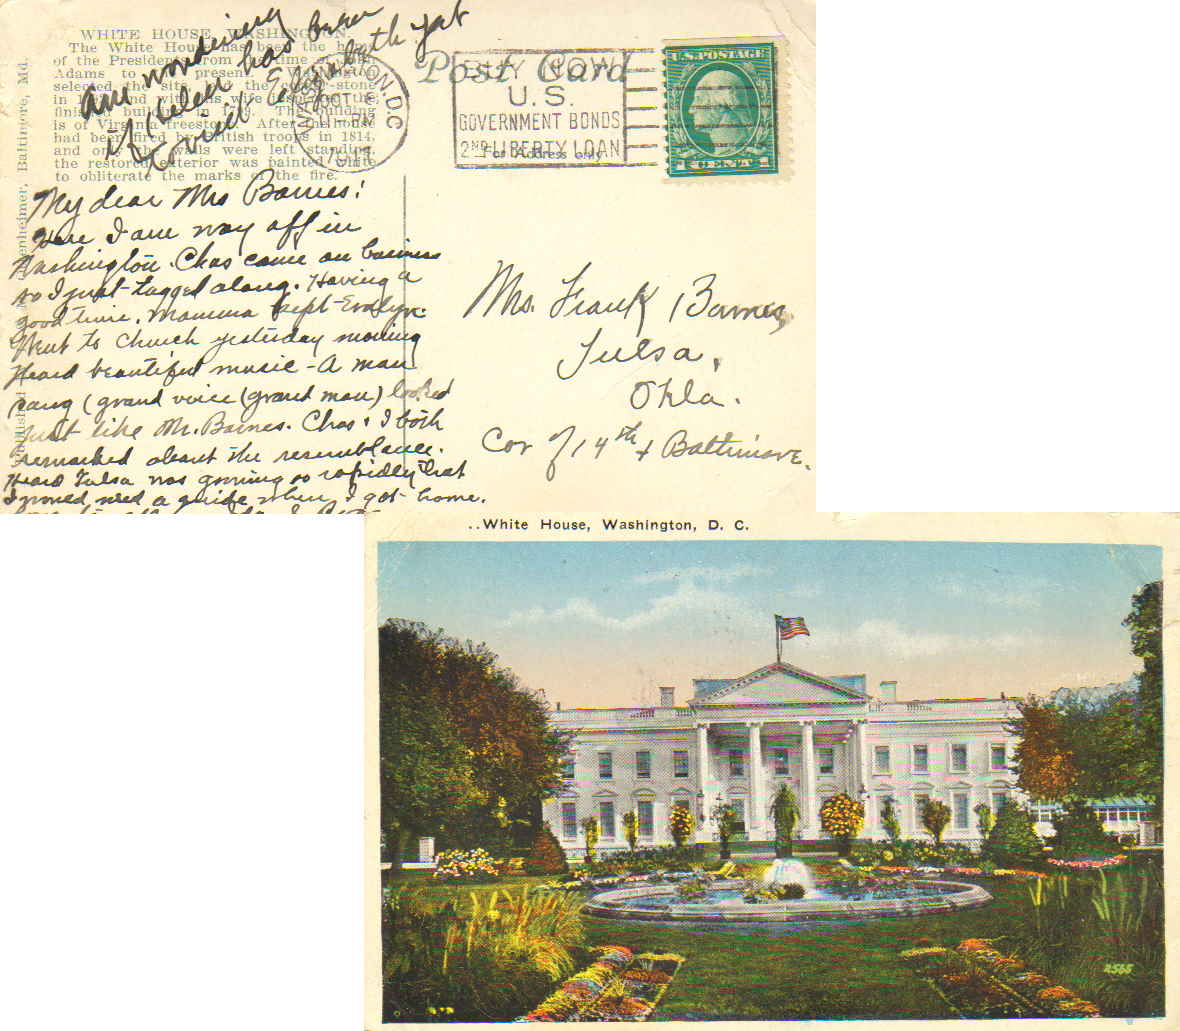 WHITE HOUSE, WASHINGTON.
The White House has been the home
of the Presidents from the time of John
Adams to the present. Washington
selected the site, laid the corner-stone
in 1792 and with his wife inspected the
finished building in 1799. The building
is of Virginia freestone. After the house
had been fired by British troops in 1814,
and only the walls were left standing,
the restored exterior was painted white
to obliterate the marks of the fire.
Am wondering
if Helen has been
to visit Elizabeth yet
Baltimore, Md.
WASHINGTON, D.C.
OCT
1917
Post Card
BUY NOW
U.S.
GOVERNMENT BONDS
2ND LIBERTY LOAN
For Address only
U.S. POSTAGE
1 CENT 1
My dear Mrs Barnes:
Here I am way off in
Washington. Chas came on business
so I just tagged along. Having a
good time. Mamma kept Evelyn.
Went to church yesterday morning
Heard beautiful music - A man
sang (grand voice (grand man) looked
just like Mr. Barnes. Chas & I both
remarked about the resemblance.
Heard Tulsa was growing so rapidly that
I would need a guide when I got home.
Mrs. Frank Barnes,
Tulsa,
Okla.
Cor of 14th & Baltimore.
..White House, Washington, D. C.
2565